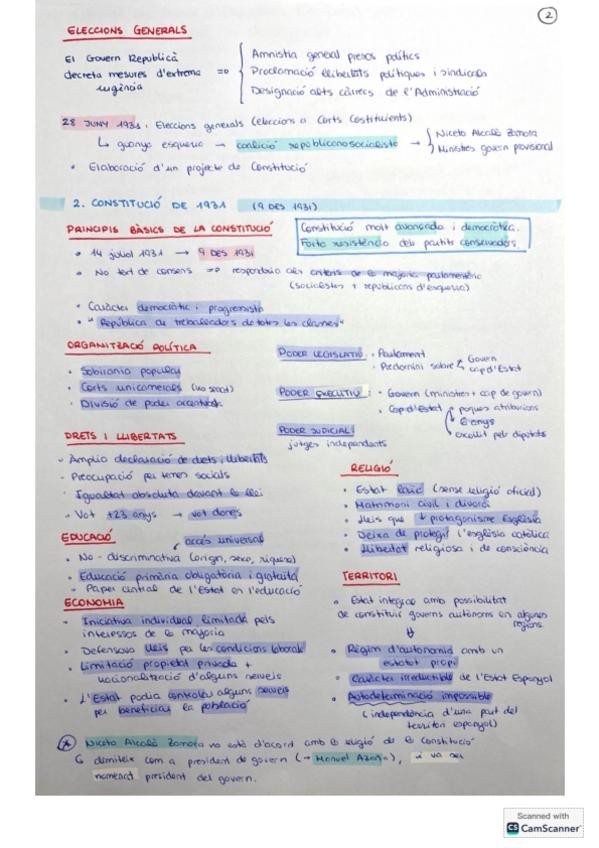 2
ELECCIONS GENERALS
El Govern Republicà
decreta mesures d'extrema =>
urgència
Amnistia general presos polítics
Proclamació llibertats polítiques i sindicals
Designació alts càrrecs de l'Administració
28 JUNY 1931: Eleccions generals (eleccions a Corts Costituients)
↳ guanya esquerra → coalició republicanosocialista → Niceto Alcalà Zamora
Ministres govern provisional
• Elaboració d'un projecte de Constitució
2. CONSTITUCIÓ DE 1931 (9 DES 1931)
PRINCIPIS BÀSICS DE LA CONSTITUCIÓ
Constitució molt avançada i democràtica.
Forta resistència dels partits conservadors.
• 14 juliol 1931 → 9 DES 1931
• No text de consens => responia als criteris de la majoria parlamentària
(socialistes + republicans d'esquerra)
• Caràcter democràtic i progressista
• "República de treballadors de totes les classes"
ORGANITZACIÓ POLÍTICA
• Sobirania popular
• Corts unicamerals (no senat)
• Divisió de poders accentuada
PODER LEGISLATIU: • Parlament
• Predomini sobre Govern
cap d'Estat
PODER EXECUTIU: • Govern (ministres + cap de govern)
• Cap d'Estat poques atribucions
6 anys
escollit pels diputats
PODER JUDICIAL:
jutges independents
DRETS I LLIBERTATS
• Àmplia declaració de drets i llibertats
• Preocupació per temes socials
• Igualtat absoluta davant la llei
• Vot +23 anys → vot dones
EDUCACIÓ
accés universal
• No-discriminativa (origen, sexe, riquesa)
• Educació primària obligatòria i gratuïta
- Paper central de l'Estat en l'educació
ECONOMIA
• Iniciativa individual limitada pels
interessos de la majoria
• Defensava lleis per les condicions laborals
• Limitació propietat privada +
nacionalització d'alguns serveis
• L'Estat podia controlar alguns serveis
per beneficiar la població
RELIGIÓ
• Estat laic (sense religió oficial)
• Matrimoni civil i divorci
• Lleis que ↓ protagonisme Església
• Deixa de protegir l'església catòlica
• Llibertat religiosa i de consciència
TERRITORI
• Estat integral amb possibilitat
de constituir governs autònoms en algunes
regions.
⇓
• Règim d'autonomia amb un
estatut propi
• Caràcter irreductible de l'Estat Espanyol
• Autodeterminació impossible
(independència d'una part del
territori espanyol)
* Niceto Alcalà Zamora no està d'acord amb la religió de la Constitució
↳ dimiteix com a president de govern (→ Manuel Azaña), i va ser
nomenat president del govern.
Scanned with
CS CamScanner